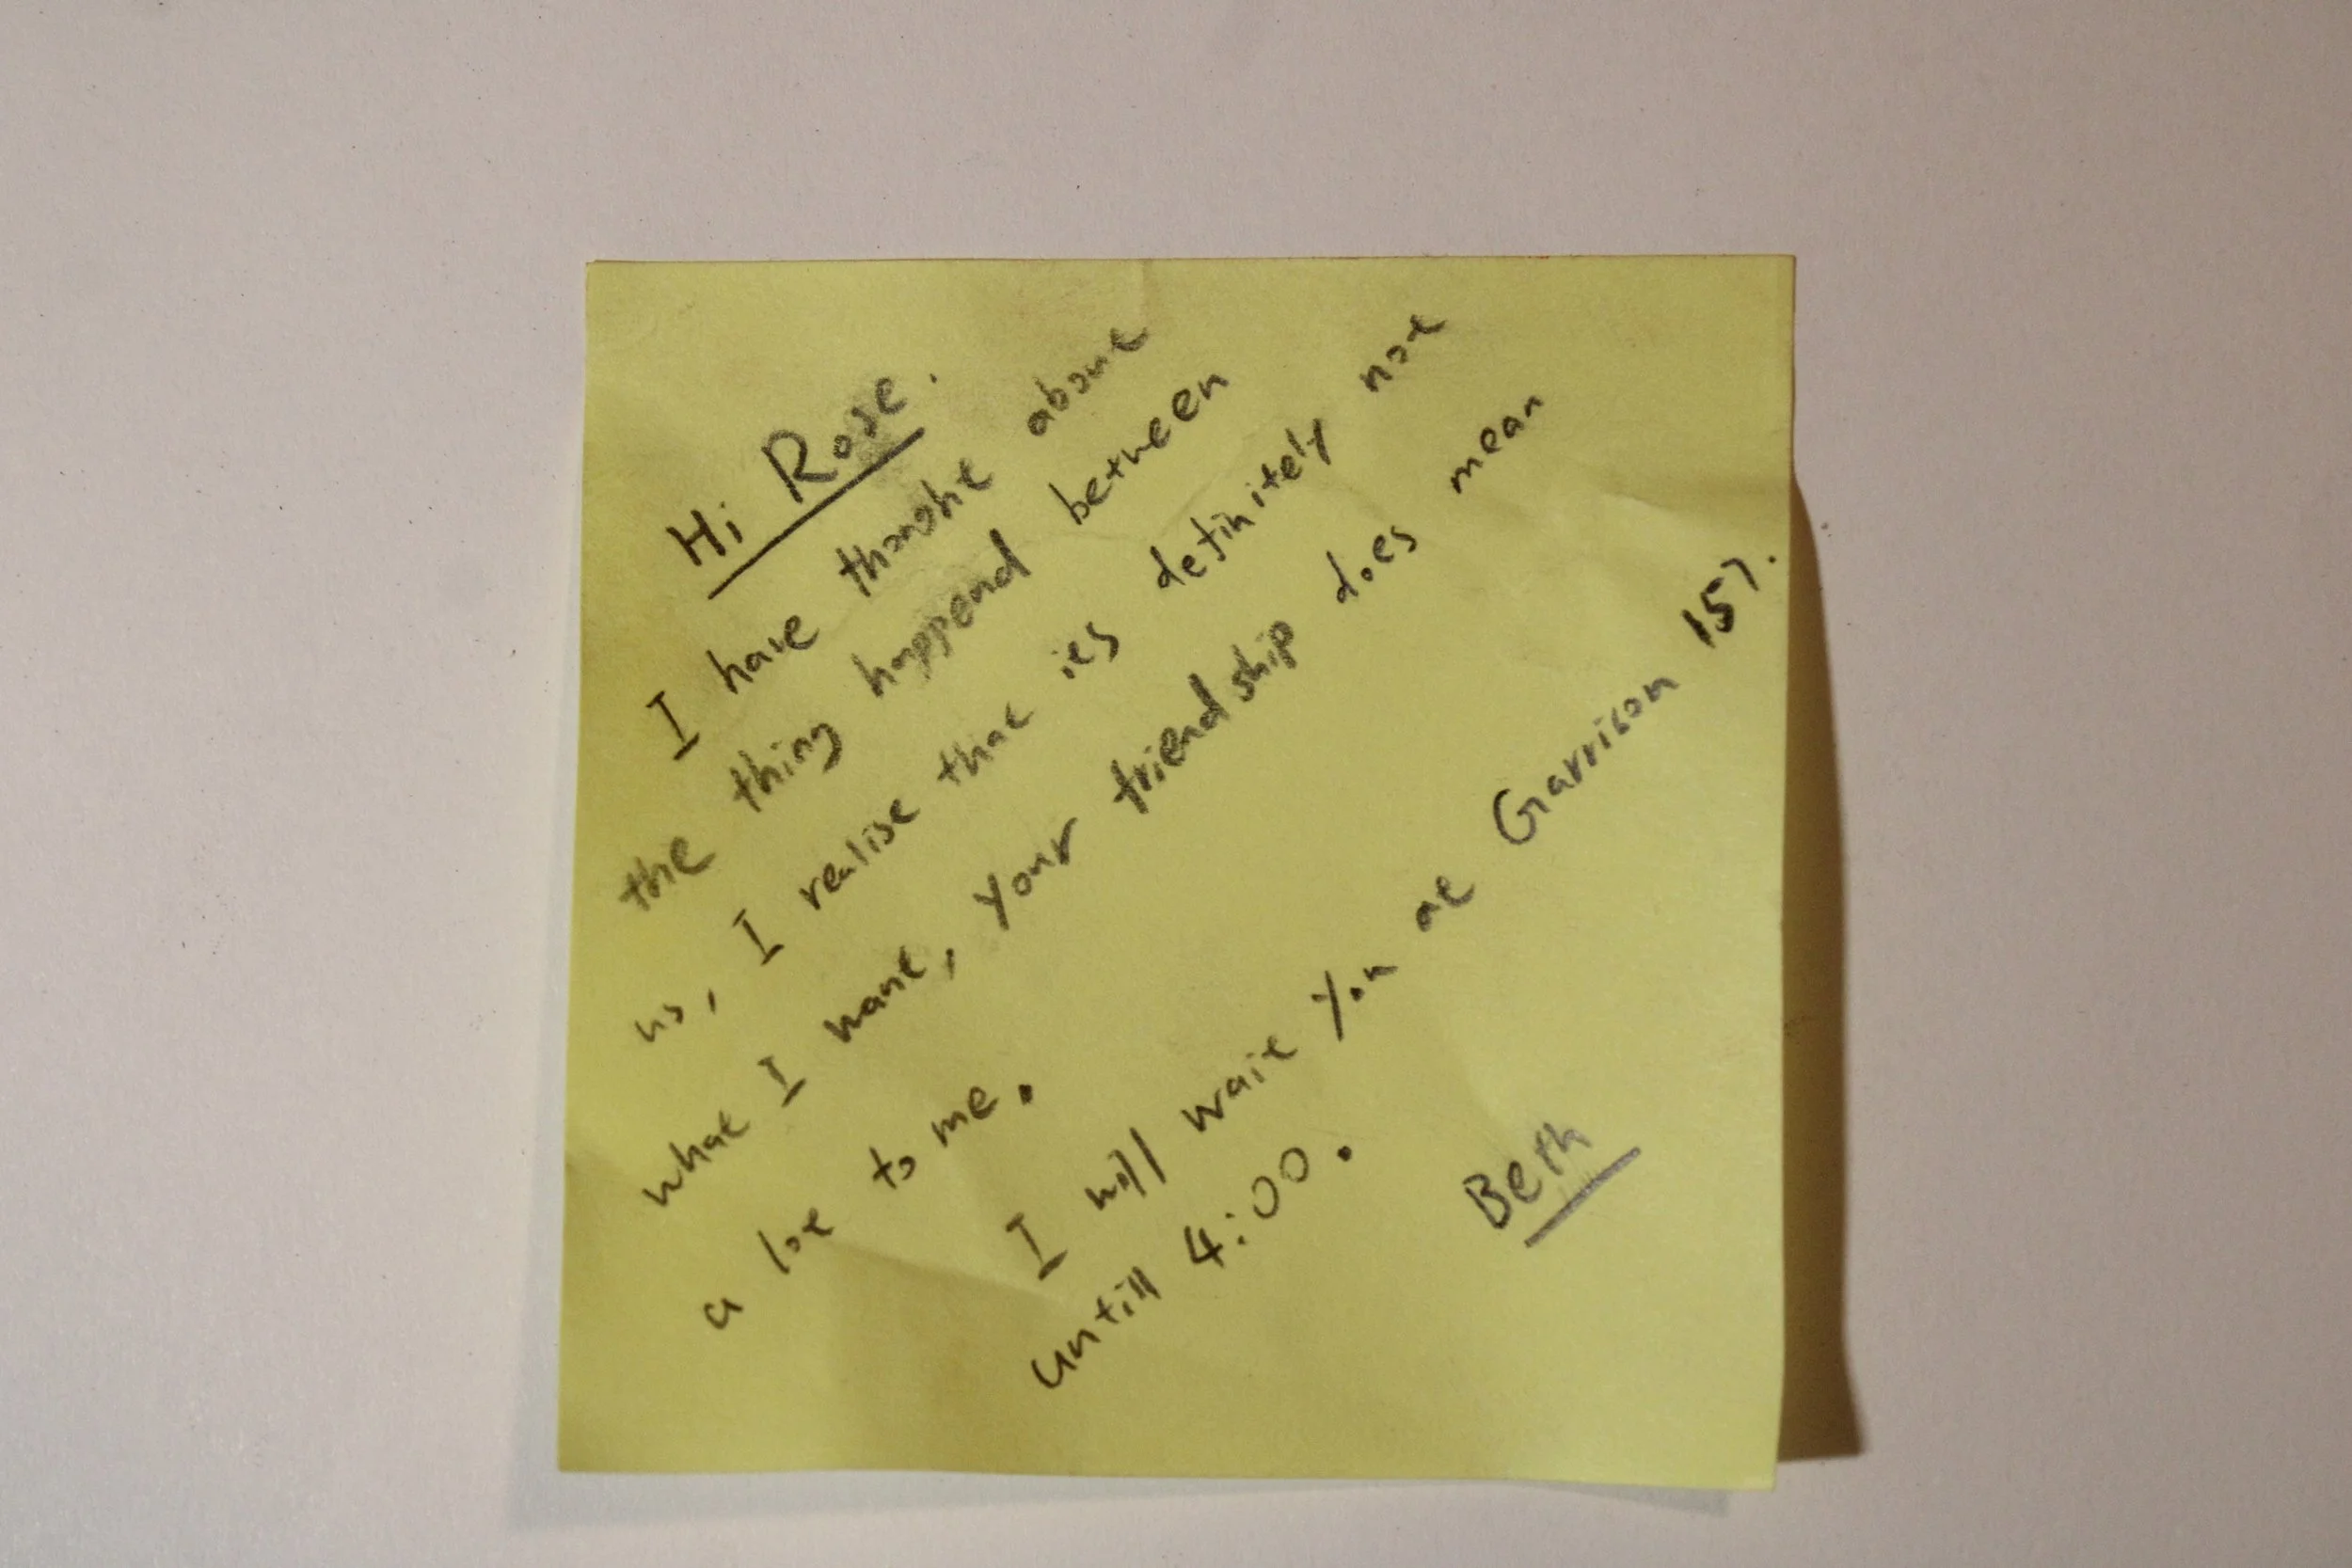 Hi Rose.
I have thought about
the thing happend between
us, I realise that its definitely not
what I want, your friendship does mean
a lot to me.
I will wait you at Garrison 157.
untill 4:00.
Beth